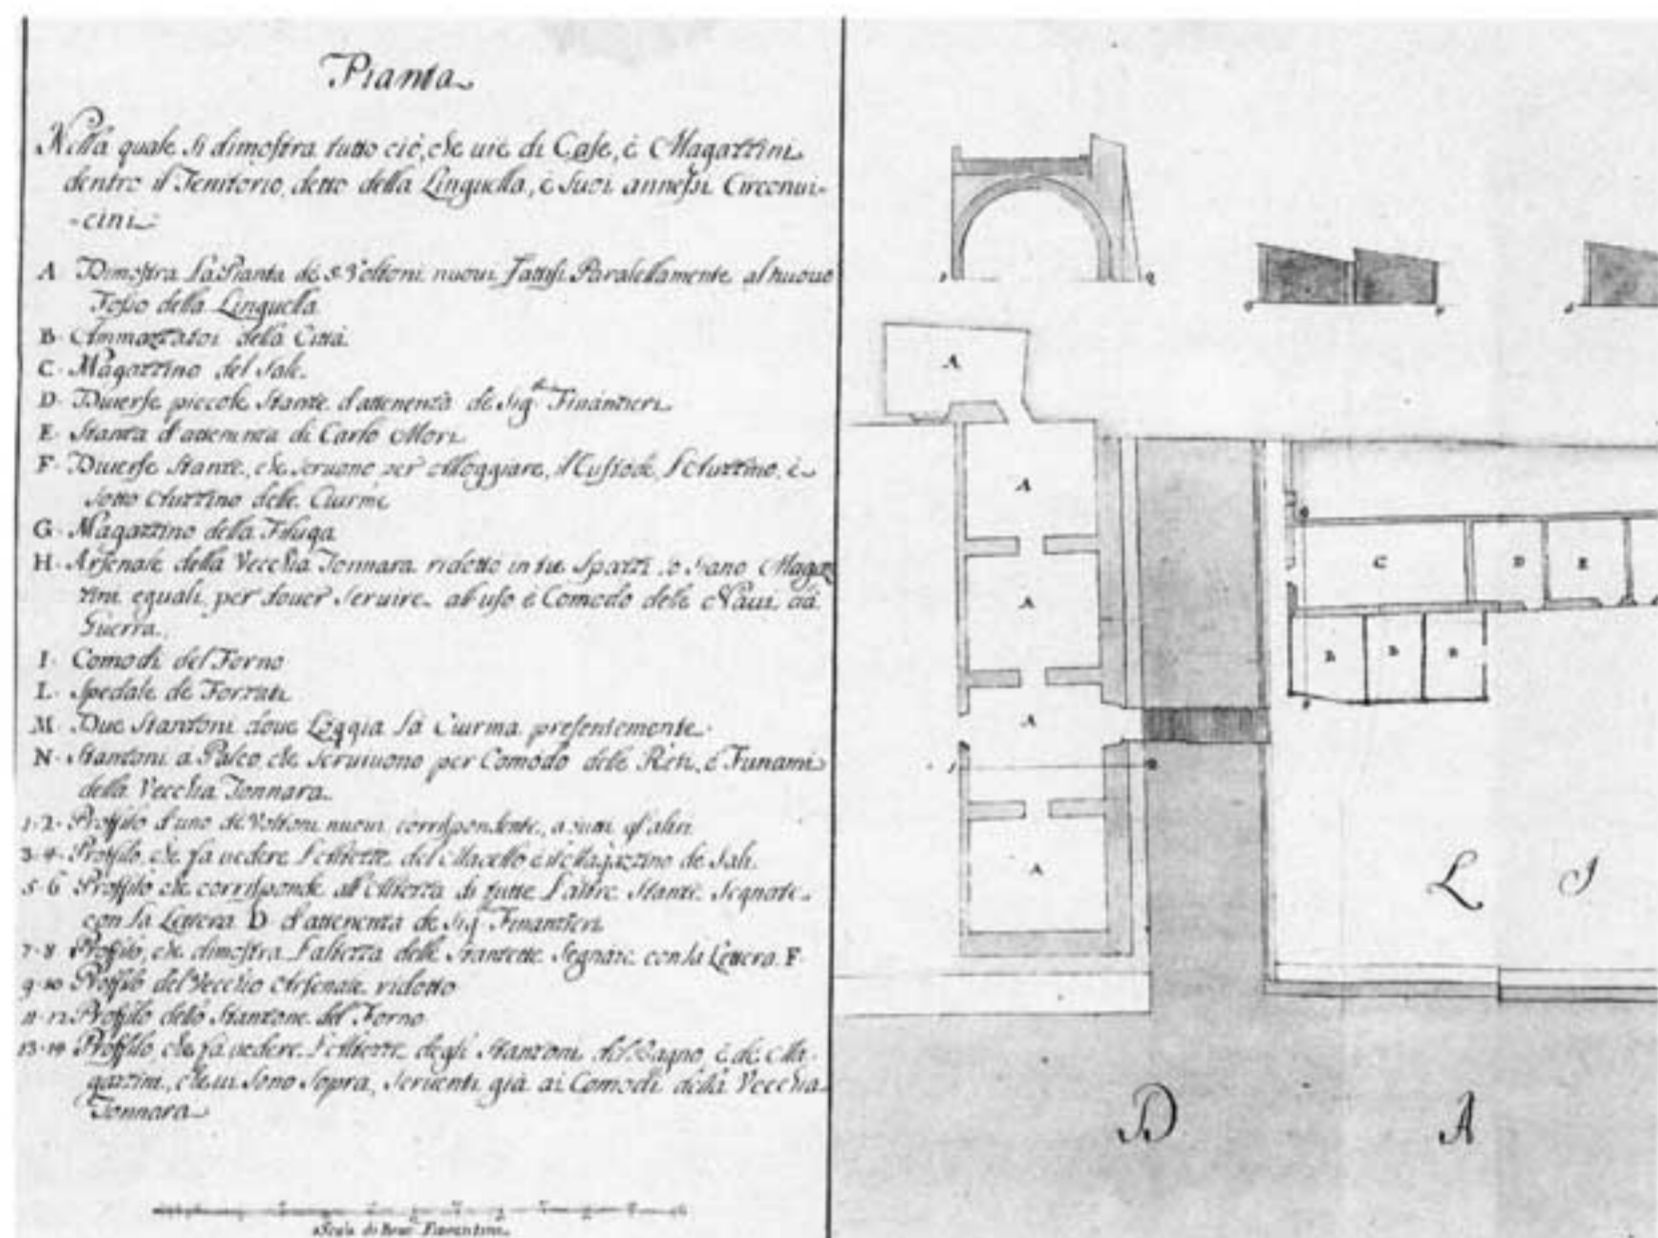 Pianta
Nella quale si dimostra tutto ciò, che vie di Case, è Magazzini
dentro il Territorio, detto della Linguella, è suoi annessi Circonui-
-cini
A Dimostra la Pianta de Voltoni nuoui fattisi Paralellamente al nuouo
Fosso della Linguella
B· Ammazzatoi della Città
C· Magazzino del Sale
D· Diuerse piccole Stanze d'attenenza de Sig.ri Finanzieri
E· Stanza d'attenenza di Carlo Mori
F· Diuerse Stanze, che seruono per Alloggiare, il Custode, l'Auzzino, è
sotto Auzzino delle Ciurme
G· Magazzino della Filuga
H· Arsenale della Vecchia Tonnara ridotto in Spazzi o siano Magaz
zini eguali, per douer seruire all'uso è Comodo delle Naui da
Guerra
I· Comodi del Forno
L· Spedale de Forzati
M· Due Stanzoni doue Loggia la Ciurma presentemente
N· Stanzoni a Palco, che seruiuono per Comodo delle Reti, è Funami
della Vecchia Tonnara
1·2· Proffilo d'uno de Voltoni nuoui, corrispondente, a tutti gl'altri
3·4· Proffilo, che fa vedere l'Altezze del Macello è del Magazzino de Sali
5·6 Proffilo che corrisponde all'Altezza di tutte l'altre Stanze Segnate
con la Lettera D d'attenenza de Sig.ri Finanzieri
7·8 Proffilo, che dimostra l'altezza delle Stanzette Segnate con la Lettera F
9·10 Proffilo del Vecchio Arsenale ridotto
11·12 Proffilo dello Stanzone del Forno
13·14 Proffilo, che fa vedere l'Altezze degli Stanzoni del Bagno, è de Ma-
gazzini, che ui sono sopra, seruenti già ai Comodi della Vecchia
Tonnara
Scala di Brac. Fiorentine
A
A
A
A
A
C
D
E
B
B
B
L I
D A